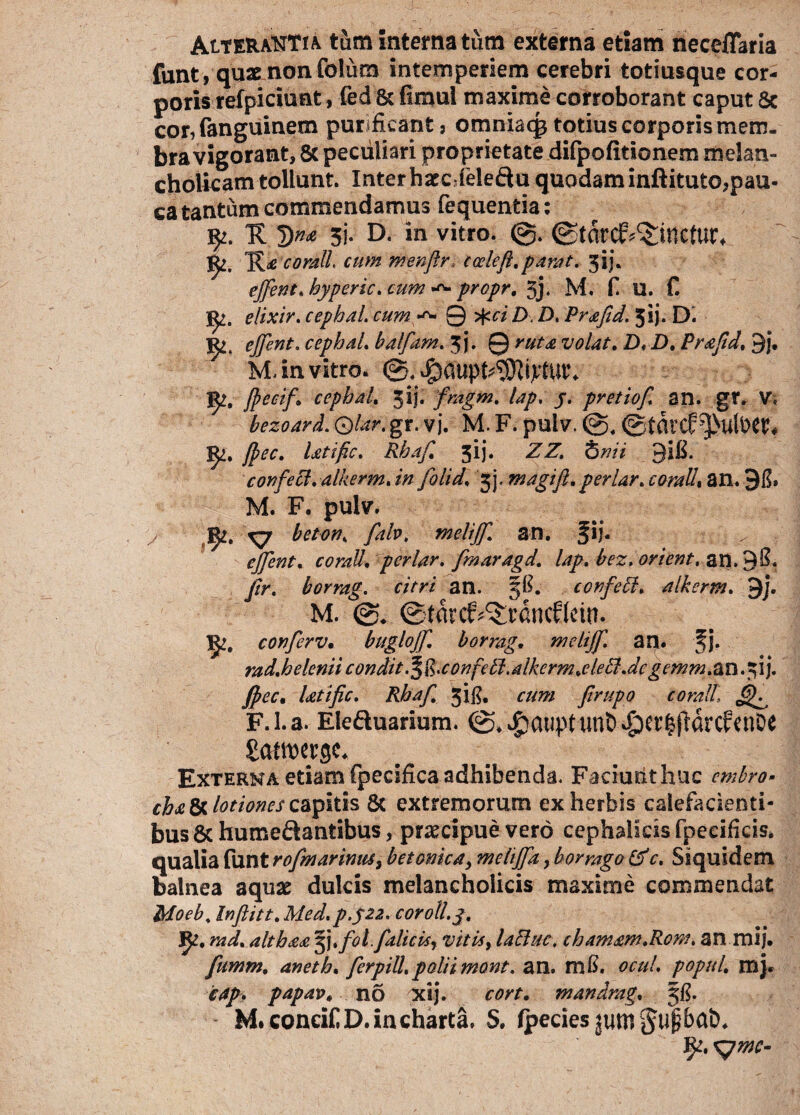 ALTERANTIA tùm interna tùm externa etiam neceſſaria
ſunt, quæ non ſolùm intemperiem cerebri totiusque cor-
poris reſpiciunt, ſed & ſimul maximè corroborant caput &
cor, ſanguinem purificant, omniaq́; totius corporis mem-
bra vigorant, & peculiari proprietate diſpoſitionem melan-
cholicam tollunt. Inter hæc ſelectu quodam inſtituto, pau-
ca tantùm commendamus ſequentia:
℞. ʒj. D. in vitro. S. Starck-Tinctur.
℞. corall. cum menſtr. cœleſt. parat. ʒij.
eſſent. hyperic. cum propr. ʒj. M. f. u. f.
℞. elixir. cephal. cum D. D. Præſid. ʒij. D.
℞. eſſent. cephal. balſam. ʒj. rutæ volat. D. D. Præſid. ℈j.
M. in vitro. S. Haupt-Mixtur.
℞. ſpecif. cephal. ʒij. fragm. lap. 5. pretioſ. an. gr. v.
bezoard. ☉lar. gr. vj. M. F. pulv. S. Starck-Pulver.
℞. ſpec. lætific. Rhaſ. ʒij. ZZ. ℈iß.
confect. alkerm. in ſolid. ʒj. magiſt. perlar. corall. an. ℈ß.
M. F. pulv.
℞. beton. ſalv. meliſſ. an. ℥ij.
eſſent. corall. perlar. ſmaragd. lap. bez. orient. an. ℈ß.
ſir. borrag. citri an. ℥ß. confect. alkerm. ℈j.
M. S. Starck-Träncklein.
℞. conſerv. bugloſſ. borrag. meliſſ. an. ℥j.
rad. helenii condit. ℥ß. confect. alkerm. elect. de gemm. an. ʒij.
ſpec. lætific. Rhaſ. ʒiß. cum ſirupo corall.
F. l. a. Electuarium. S. Haupt und Hertzſtärckende
Latwerge.
EXTERNA etiam ſpecifica adhibenda. Faciunt huc embro-
chæ & lotiones capitis & extremorum ex herbis calefacienti-
bus & humectantibus, præcipuè verò cephalicis ſpecificis,
qualia ſunt roſmarinus, betonica, meliſſa, borrago &c. Siquidem
balnea aquæ dulcis melancholicis maximè commendat
Moeb. Inſtitt. Med. p. 522. coroll. 3.
℞. rad. althææ ℥j. fol. ſalicis, vitis, lactuc. chamæm. Rom. an mij.
ſumm. aneth. ſerpill. polii mont. an. mß. ocul. popul. mj.
cap. papav. no xij. cort. mandrag. ℥ß.
M. conciſ. D. in chartâ. S. ſpecies zum Fußbad.
℞. mc-